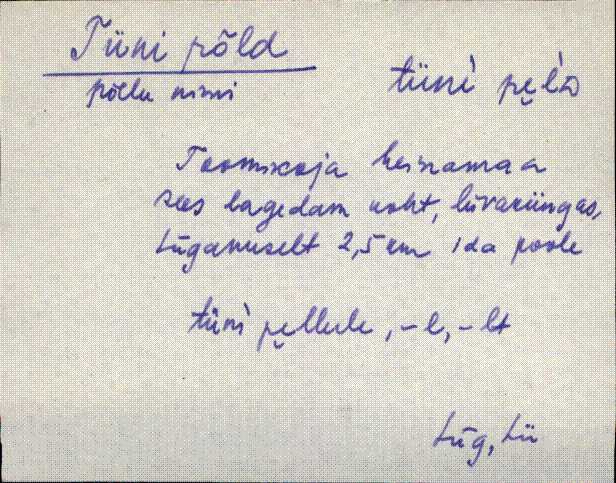 Tüni põld
põllu nimi
tüni pe̮ĺd
Toomikoja heinamaa
sees lagedam koht, liivaküngas,
Lüganuselt 2,5 km ida poole
tüni pe̮llule, -l, -lt
Lüg, Lü